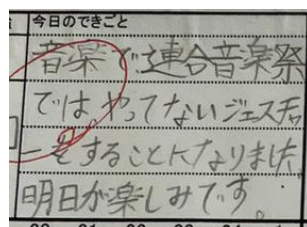 今日のできごと
音楽で、連合音楽祭
では、やってないジェスチャ
ーをすることになりました
明日が楽しみです。